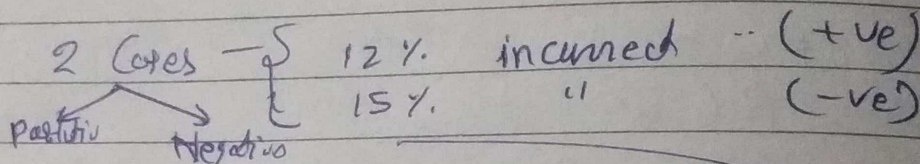 2 Cases - { 12 %. incurred -- (+ve)
15 %. " (-ve)
Positiv Negativo